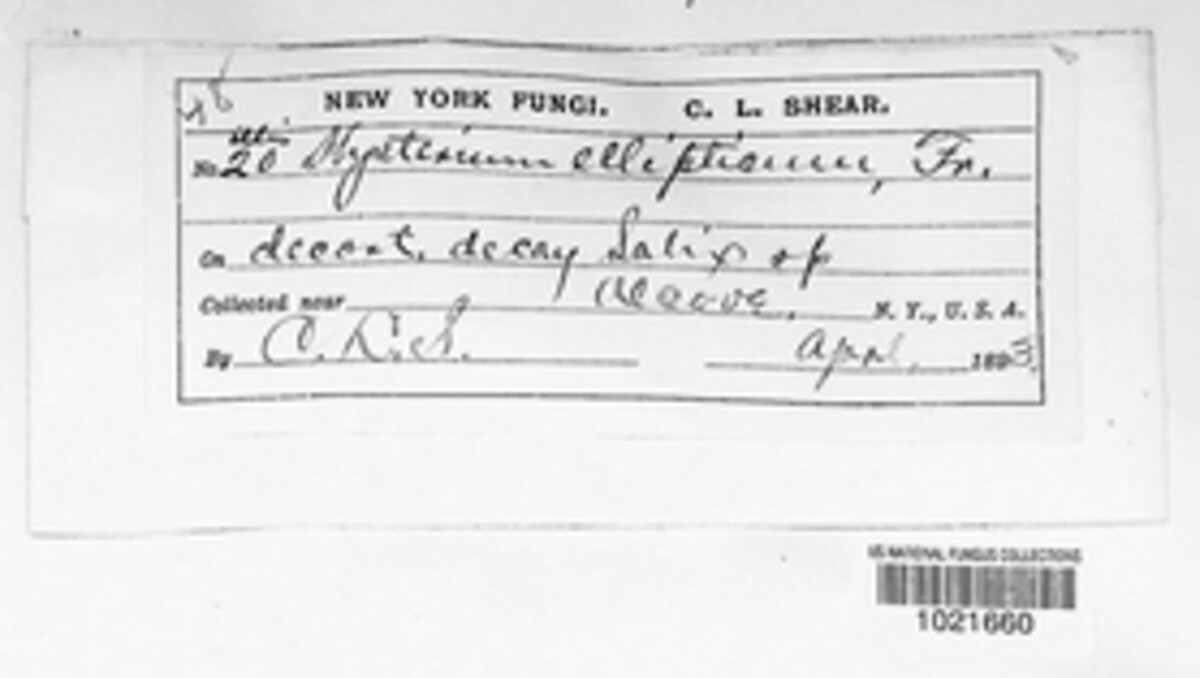 NEW YORK FUNGI. C. L. SHEAR.
No. 20 Hysterium ellipticum, Fr.
On decort. decay Salix sp
Collected near Alcove, N. Y., U. S. A.
By C. L. S. April, 1893.
US NATIONAL FUNGUS COLLECTIONS
1021660